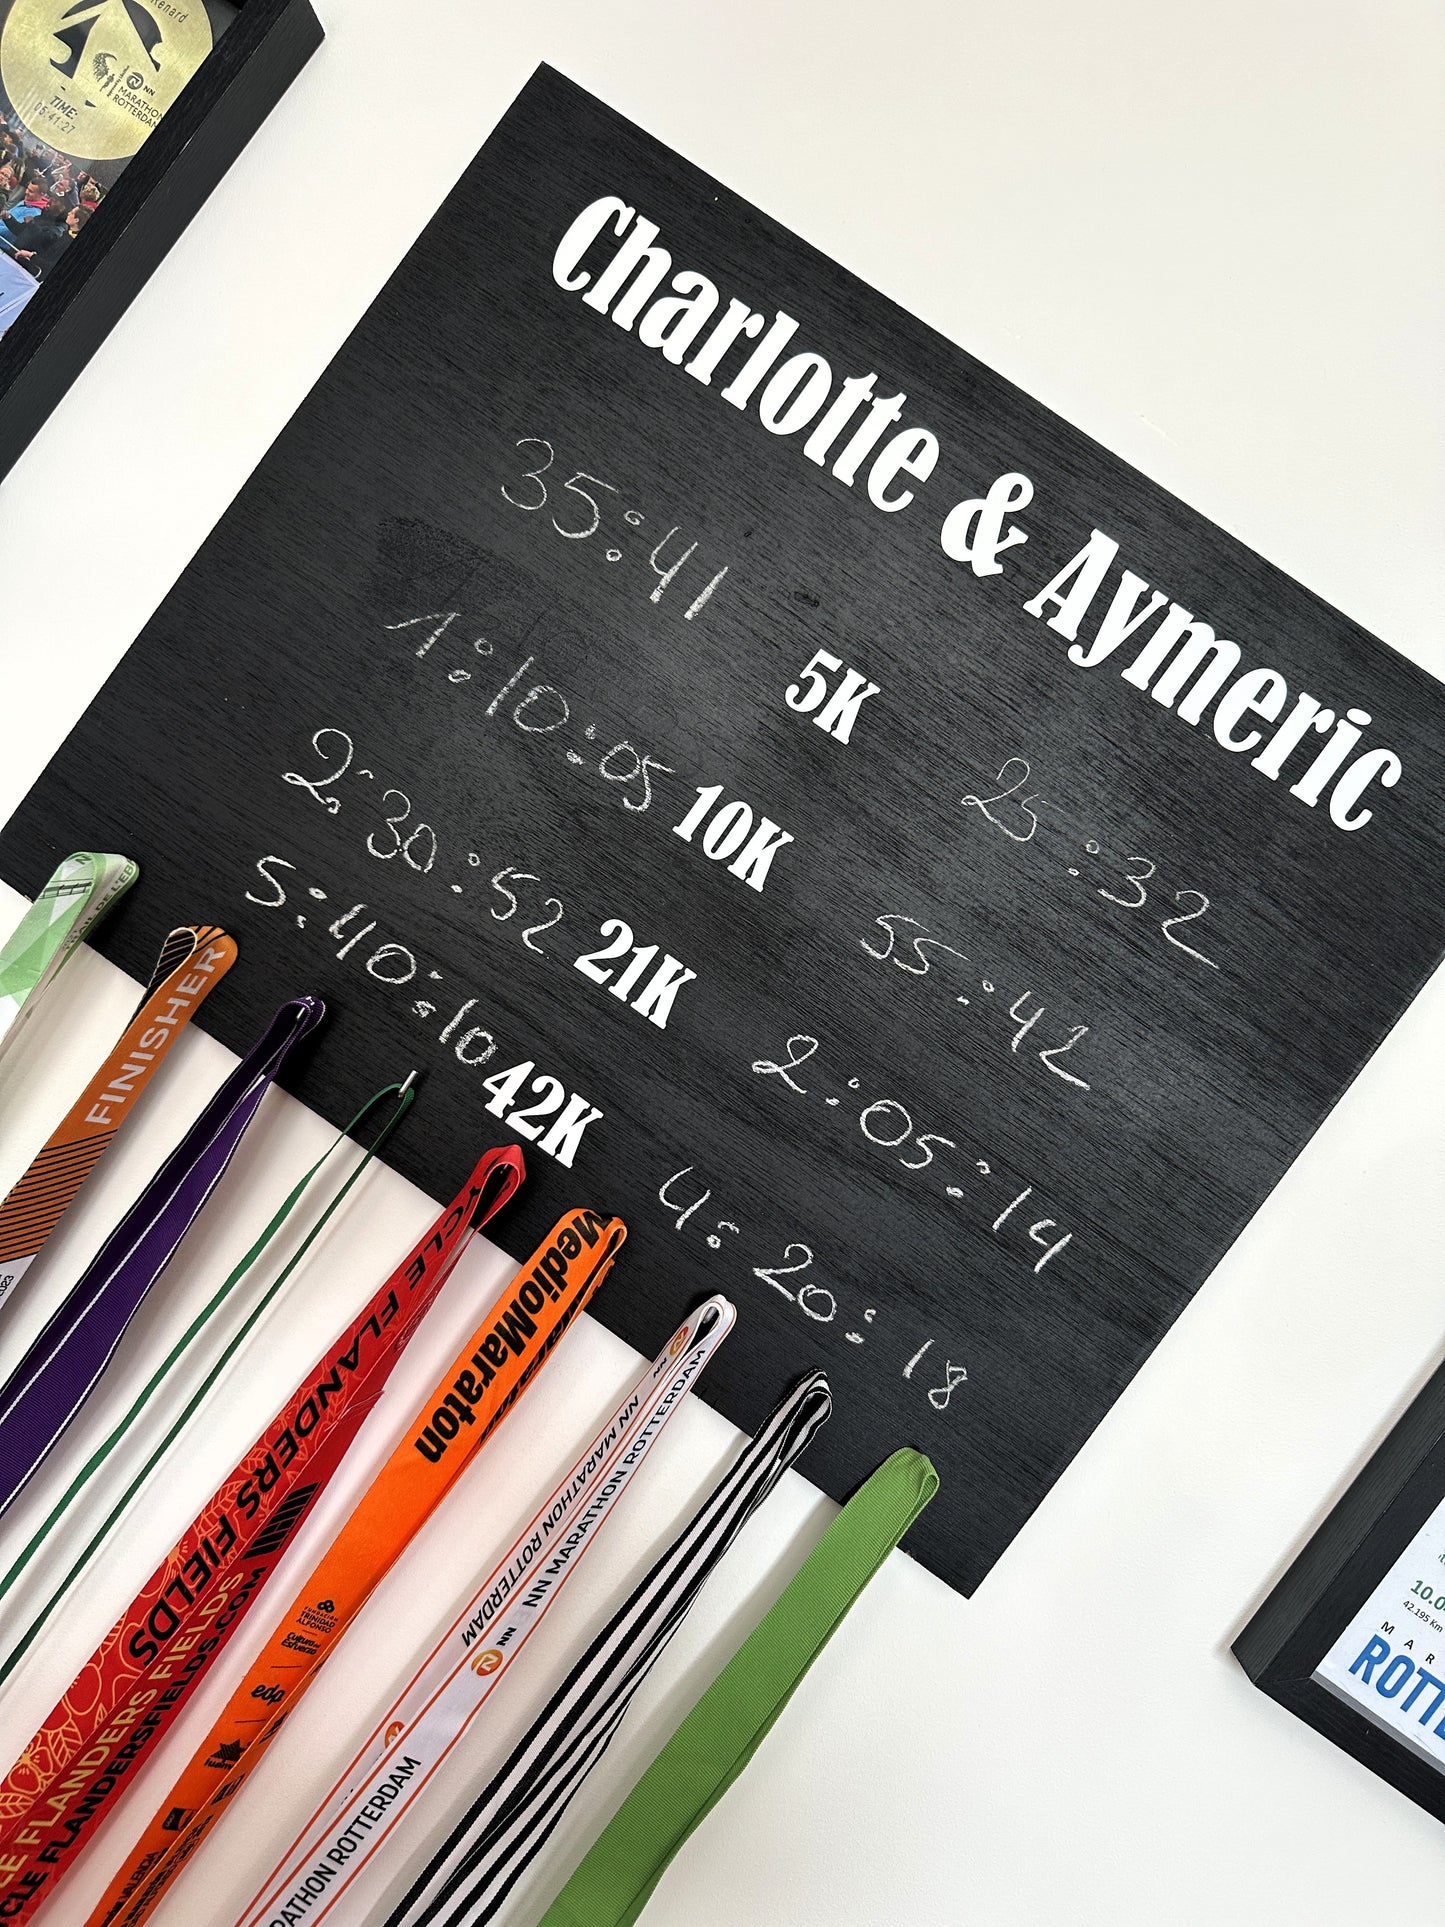 enard
TIME:
05:41:27
NN
MARATHON
ROTTERDAM
Charlotte & Aymeric
35:41 5K 25:32
1:10:05 10K 55:42
2:30:52 21K 2:05:14
5:40:10 42K 4:20:18
TRAIL DE L'EB
FINISHER
2023
YCLE FLANDERS FIELDS
CLE FLANDERS FIELDS
YCLE FLANDERSFIELDS.COM
MedioMaraton
FUNDACIÓN
TRINIDAD
ALFONSO
Cultura del
Esfuerzo
edp
VALENCIA
NN
NN MARATHON ROTTERDAM
NN MARATHON ROTTERDAM
NN
RATHON ROTTERDAM
10.0
42.195 Km
M A R
ROTTE